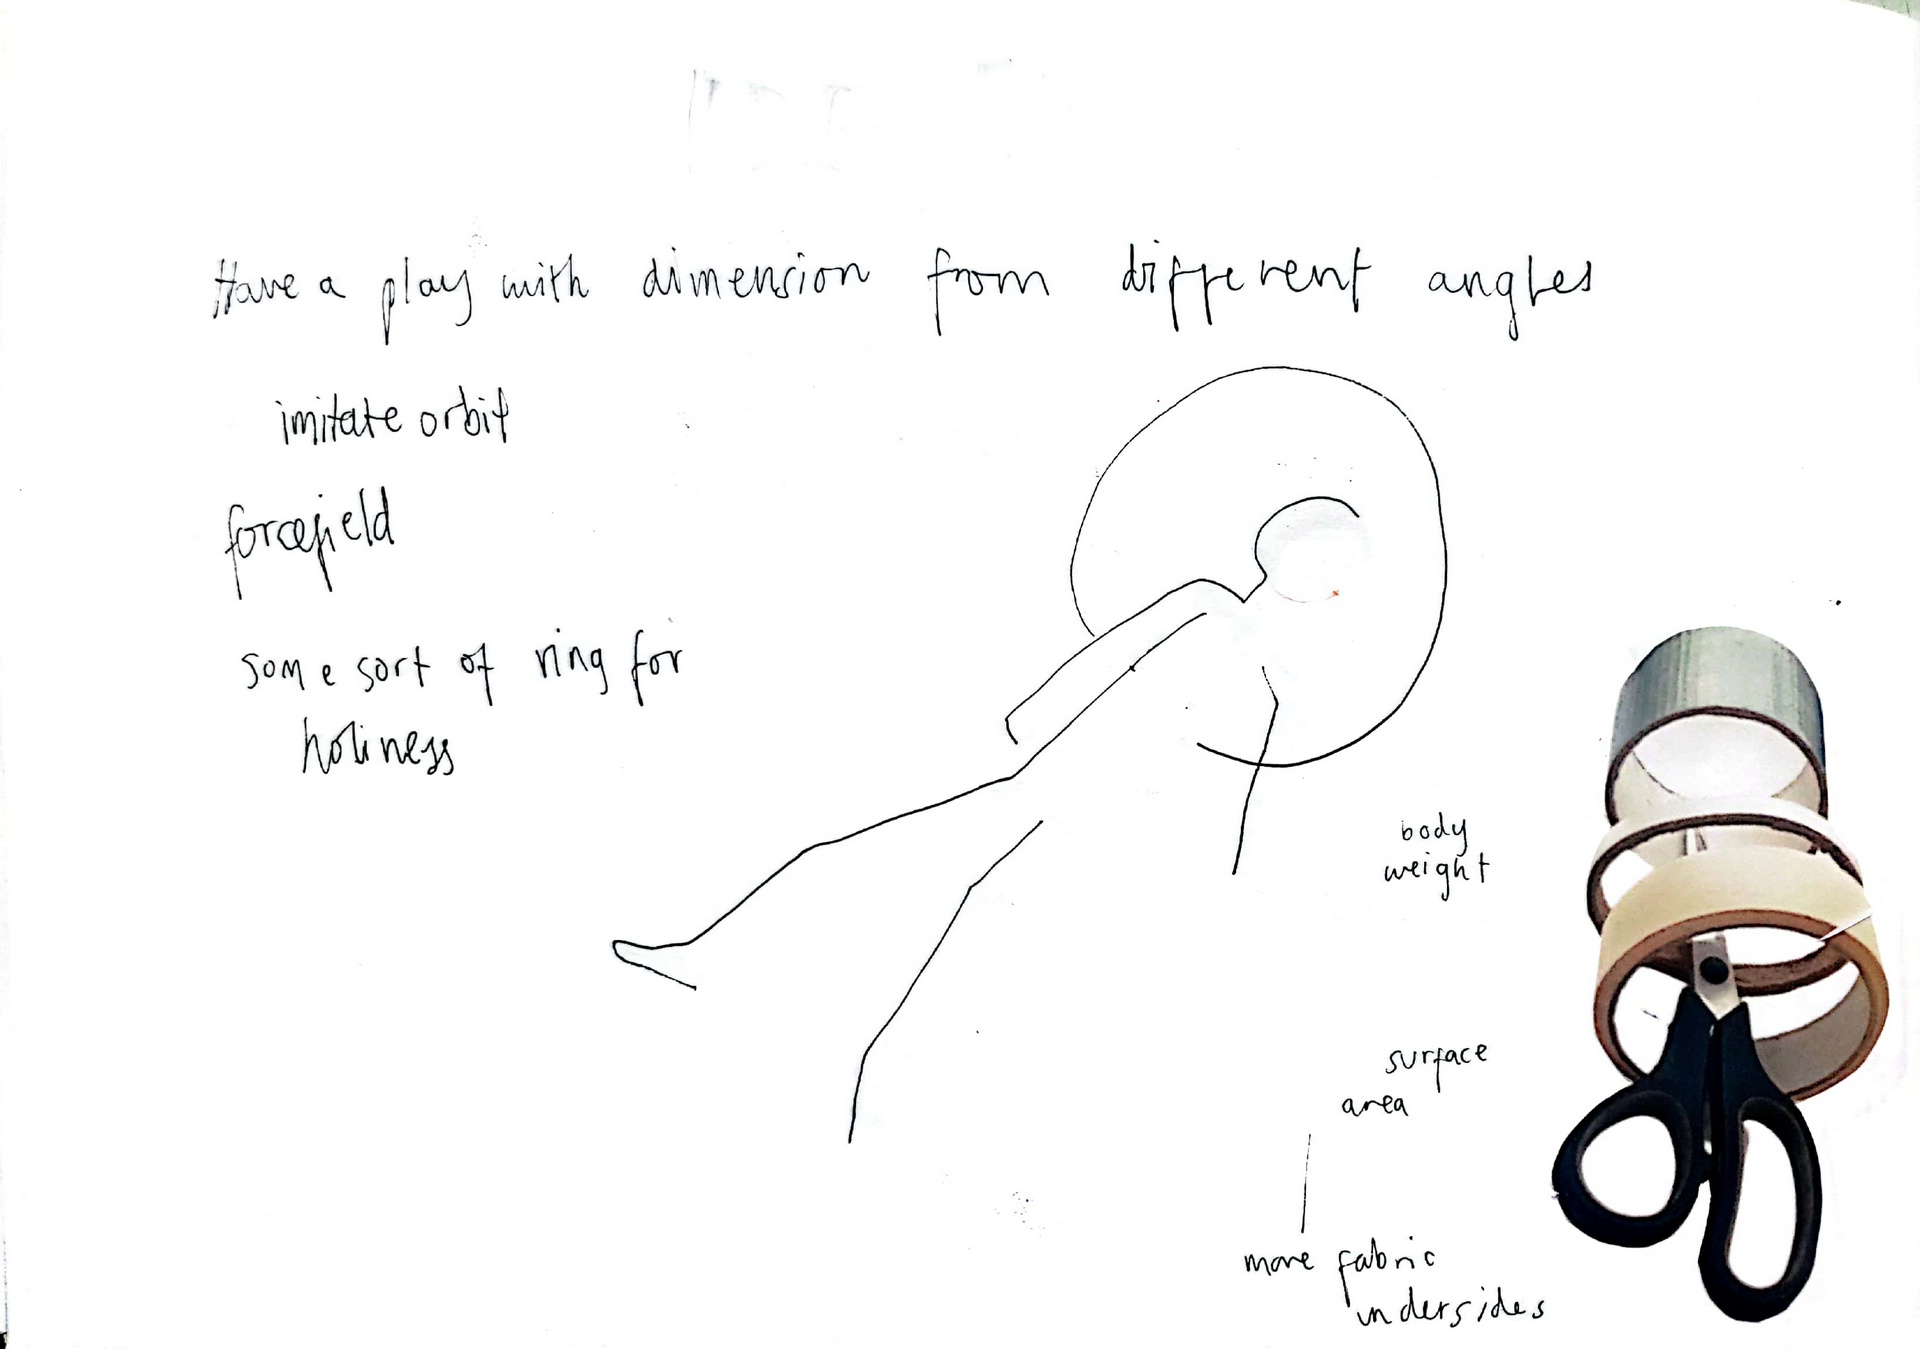 Have a play with dimension from different angles
imitate orbit
forcefield
some sort of ring for
holiness
body
weight
surface
area
more fabric
undersides